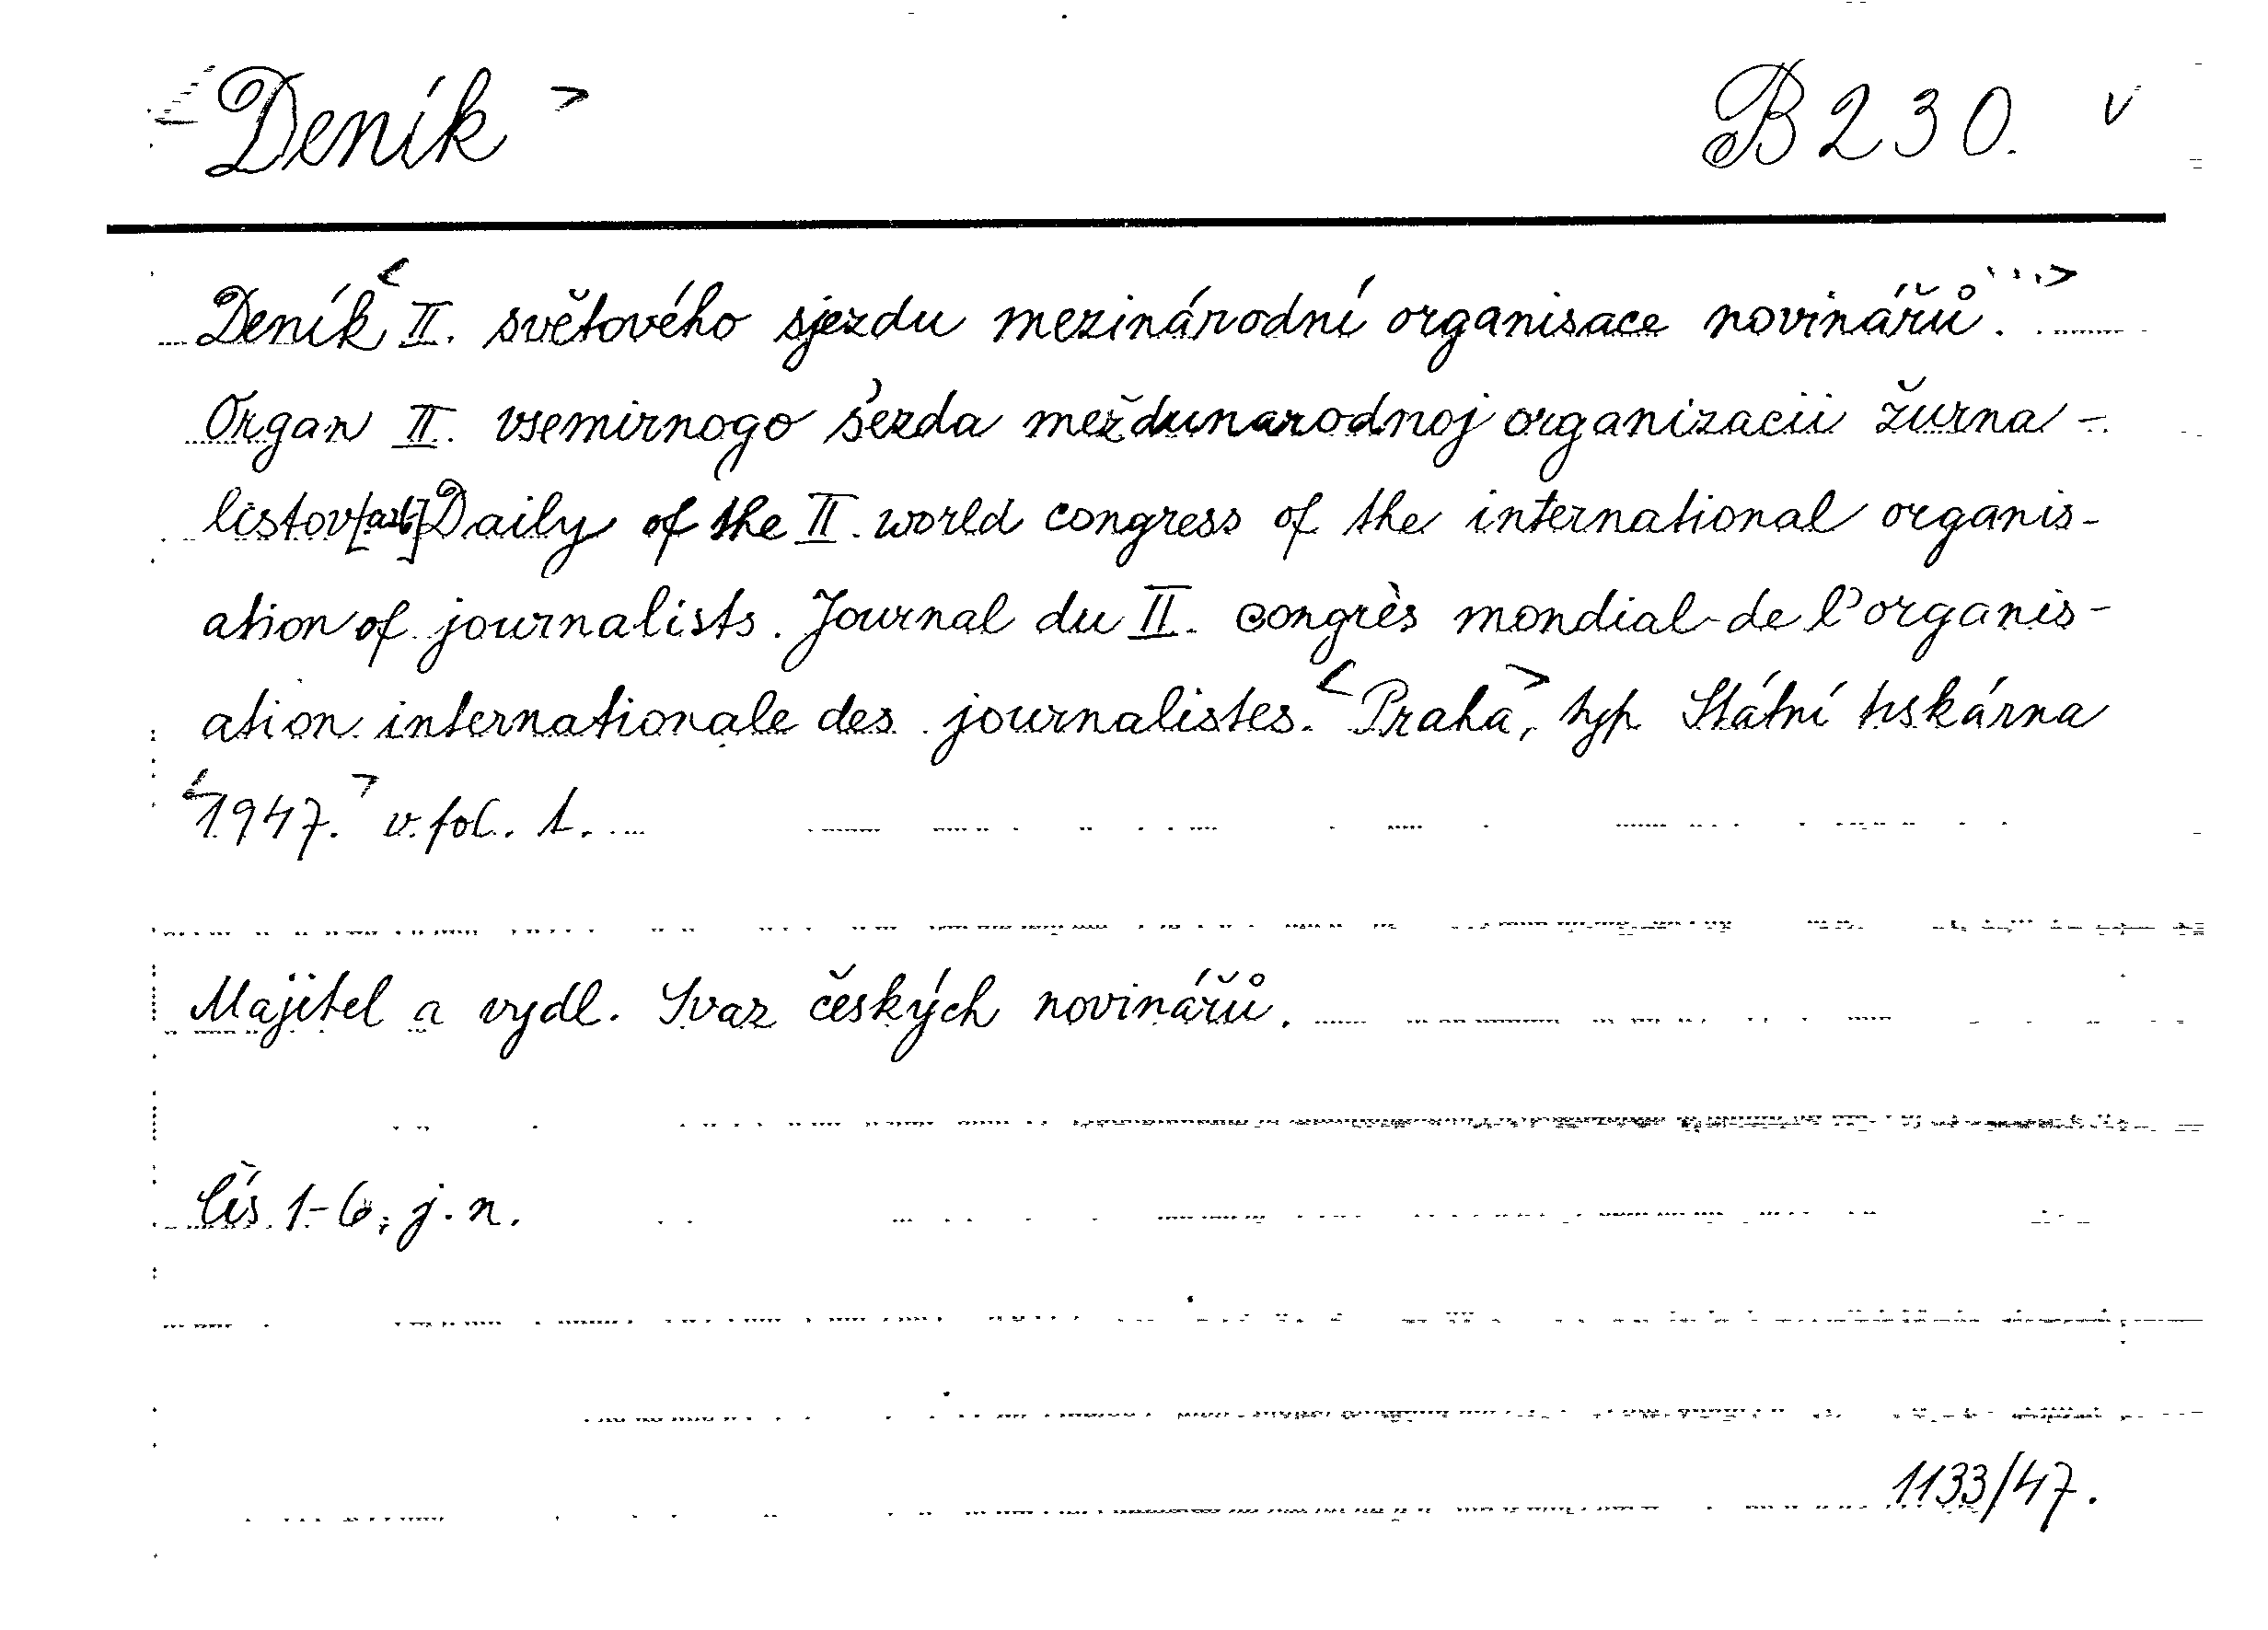 <Deník> B 230. v
Deník <II. světového sjezdu mezinárodní organisace novinářů...>
Organ II. vsemirnogo s'ezda meždunarodnoj organizacii žurna-
listov[azb] Daily of the II. world congress of the international organis-
ation of journalists. Journal du II. congrès mondial de l'organis-
ation internationale des journalistes. <Praha>, typ Státní tiskárna
<1947.> v. fol. t.
Majitel a vydl. Svaz českých novinářů.
Čís 1-6; j. n.
1133/47.